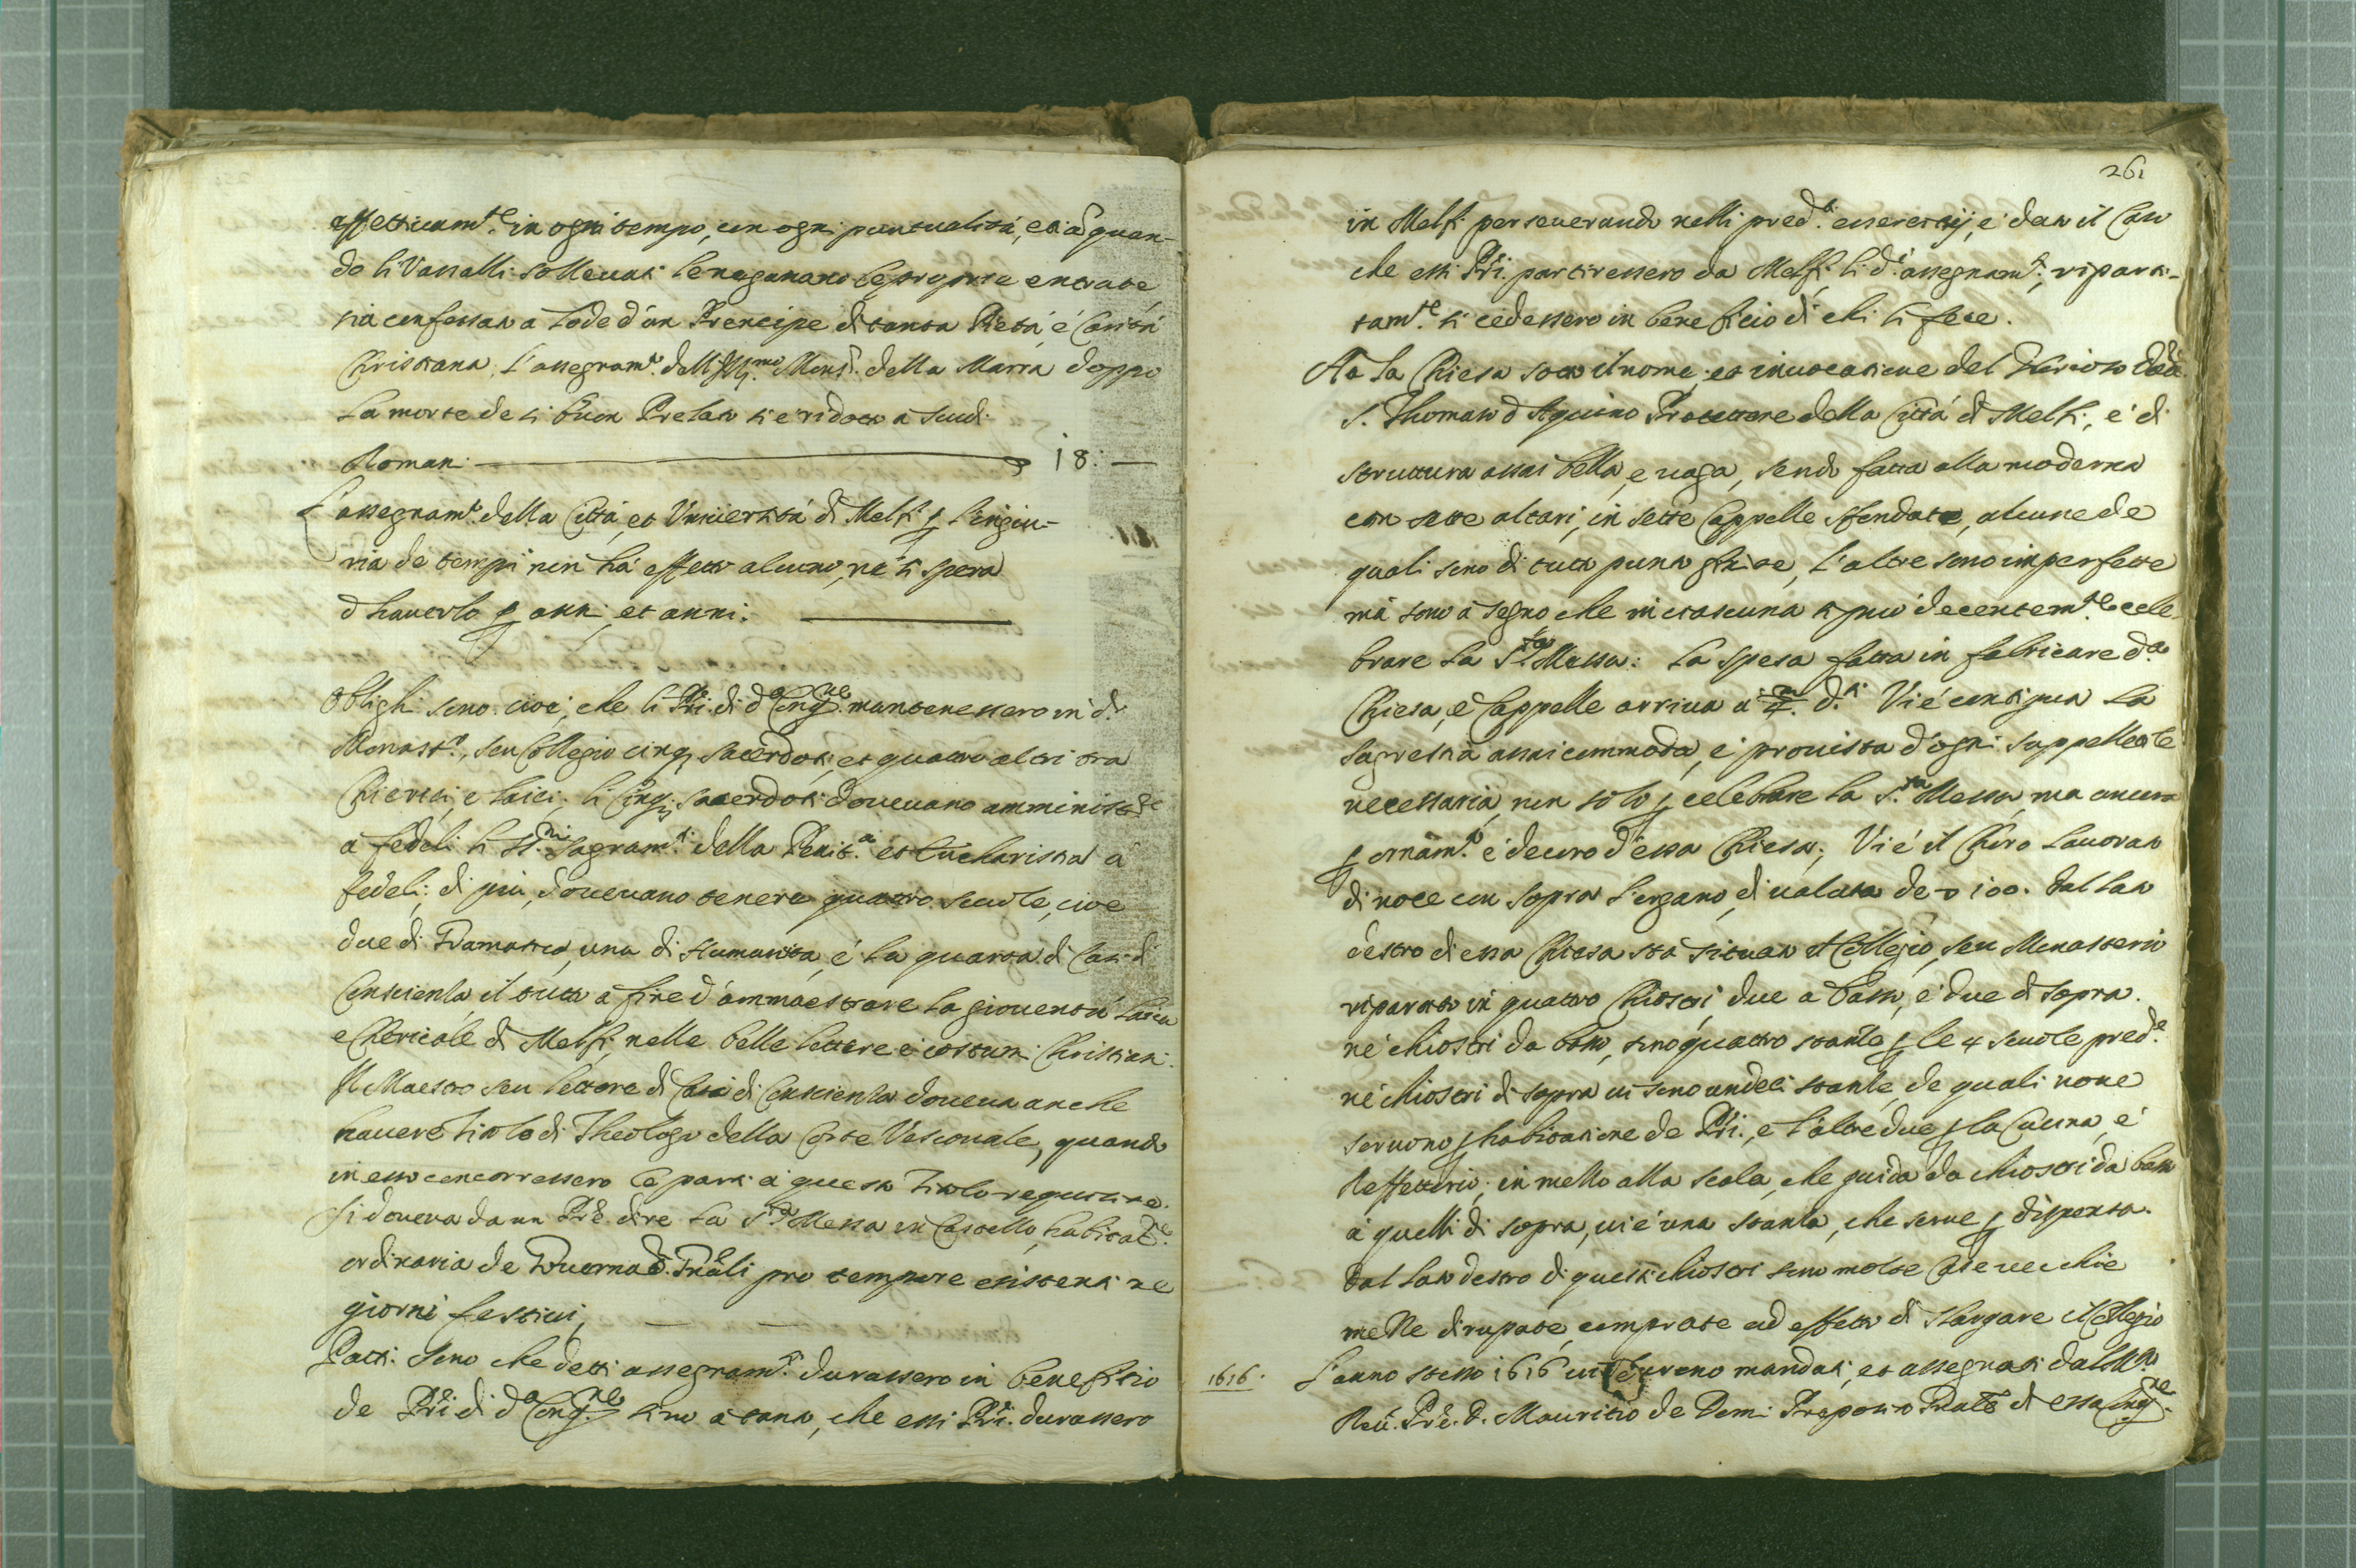 effettivam.te in ogni tempo, con ogni puntualità, et à quan-
do li Vassalli sollevati le negavano le proprie entrate
sia confessato a lode d'un Prencipe di tanta Pietà, è Carità
Christiana. L'assegnam.to dell'Ill.mo Mons.r della Marra doppo
la morte de si buon Prelato si è ridotto à scudi
Romani 18:
L'assegnam.to della Città, et Università di Melfi ꝑ l'ingiu-
ria de tempi non hà effetto alcuno, nè si spera
d'haverlo ꝑ anni, et anni.
Oblighi sono. cioè, che li P̃ri di d.a Cong.ne mantenessero in d.o
Monast.o, seu Collegio cinq; sacerdoti, et quattro altri tra
Chierici, e laici. li Cinq; sacerdoti dovevano amministr.e
a fedeli li SS.mi Sagram.ti della Penit.a et Eucharistia a
fedeli; di più, dovevano tenere quattro scuole, cioe
due di Gramatica, una di Humanità, é la quarta di Casi di
Conscienza, il tutto à fine d'ammaestrare la gioventù laica
e Chericale di Melfi, nelle belle lettere e costumi Christiani.
Il Maestro seu lettore di Casi di Conscienza doveva anche
havere titolo di Theologo della Corte Vescovale, quando
in esso concorressero le parti à questo titolo requisite.
Si doveva da un P̃re dire la S.ta Messa in Castello, habitat.e
ordinaria de Governad.i Gñali pro tempore existenti ne
giorni festivi,
Patti. Sono che detti assegnam.ti durassero in benefitio
de P̃ri di d.a Cong.ne sino à tanto, che essi P̃ri. durassero
261
in Melfi perseverando nelli pred.i essercitij, e' dato il Caso
che essi P̃ri. partissero da Melfi, li d.i assegnam.ti, riparti-
tam.te si cedessero in beneficio di chi li fece.
Hà la Chiesa sotto il nome, et invocatione del Glorioso Dott.
S. Thomaso d'Aquino Protettore della Città di Melfi, e' di
struttura assai bella, e vaga, sendo fatta alla moderna
con sette altari, in sette Cappelle sfondate, alcune de
quali sono di tutto punto finite, l'altre sono imperfette
mà sono à segno, che in ciascuna si può decentem.te cele-
brare la S.ta Messa: La spesa fatta in fabricare d.a
Chiesa, e Cappelle arriva a 4.m d.ti Vi é contigua la
Sagrestia assai commoda, e' provista d'ogni suppellettile
necessaria, non solo ꝑ celebrare la S.ta Messa, ma ancora
ꝑ ornam.to e' decoro d'essa Chiesa; Vi é il Choro lavorato
di noce con sopra l'organo, di valuta de 100. Dal lato
destro di essa Chiesa stà situato il Collegio, seu Monasterio
ripartito in quattro Chiostri, due a basso, e' due di sopra.
né chiostri da basso, sono quattro stanze ꝑ le 4 scuole pred.e
né chiostri di sopra vi sono undeci stanze, de quali nove
servono ꝑ habitatione de P̃ri., e l'altre due ꝑ la Cucina, é
Reffettorio; in mezzo alla scala, che guida da chiostri da basso
à quelli di sopra, vi é una stanza, che serve ꝑ dispensa.
Dal lato destro di questi chiostri sono molte Case vecchie
mezze dirupate, comprate ad effetto di slargare il Collegio
1616. L'anno stesso 1616 vi furono mandati, et assegnati dal M.to
Rev. P̃re. D. Mauritio de Domi Preposito Gñale di essa Cong.ne